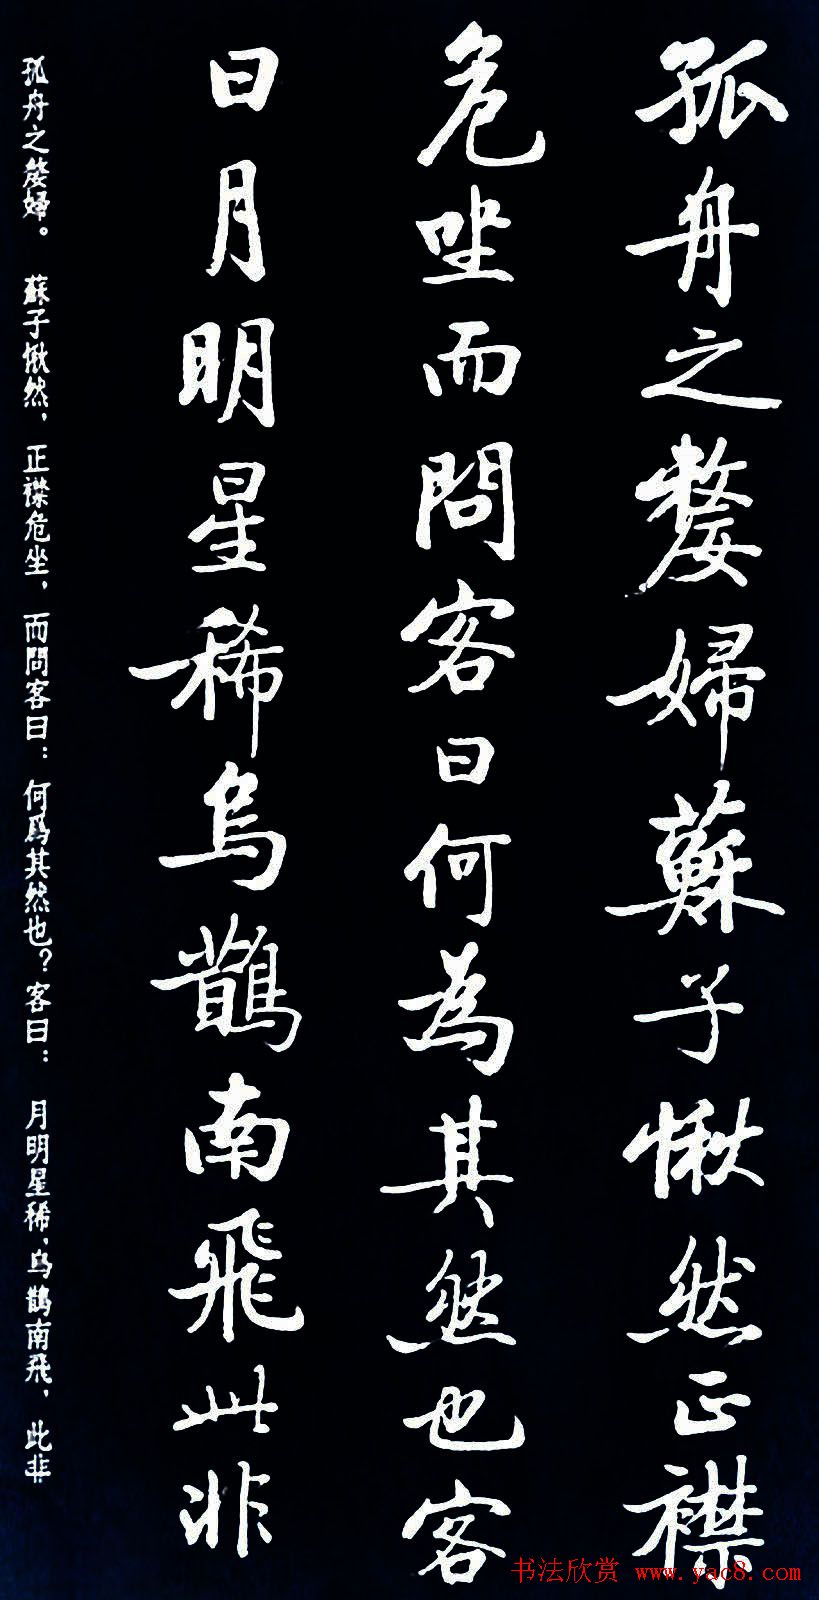 孤舟之嫠婦蘇子愀然正襟
危坐而問客曰何為其然也客
曰月明星稀烏鵲南飛此非
孤舟之嫠婦。 蘇子愀然，正襟危坐，而問客曰：何爲其然也？客曰： 月明星稀，烏鵲南飛，此非
书法欣赏 www.yac8.com